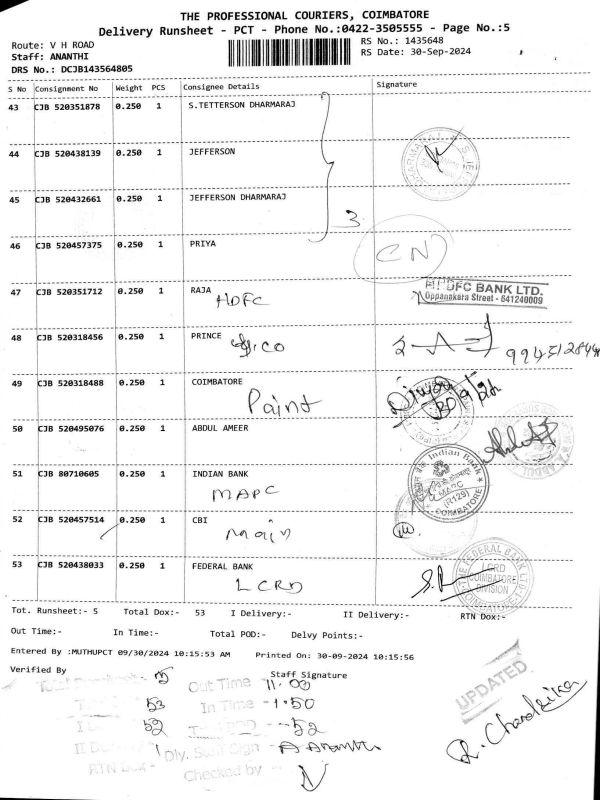 THE PROFESSIONAL COURIERS, COIMBATORE
Delivery Runsheet - PCT - Phone No.:0422-3505555 - Page No.:5
Route: V H ROAD RS No.: 1435648
Staff: ANANTHI RS Date: 30-Sep-2024
DRS No.: DCJB143564805
S No Consignment No Weight PCS Consignee Details Signature
43 CJB 520351878 0.250 1 S.TETTERSON DHARMARAJ
44 CJB 520438139 0.250 1 JEFFERSON
45 CJB 520432661 0.250 1 JEFFERSON DHARMARAJ
3
46 CJB 520457375 0.250 1 PRIYA CN
47 CJB 520351712 0.250 1 RAJA HDFC
HDFC BANK LTD.
Oppanakara Street - 641240009
48 CJB 520318456 0.250 1 PRINCE
49 CJB 520318488 0.250 1 COIMBATORE
Paint 30/9/24
50 CJB 520495076 0.250 1 ABDUL AMEER
51 CJB 80710605 0.250 1 INDIAN BANK
MAPC
Indian Bank
MAPC
(R129)
COIMBATORE
52 CJB 520457514 0.250 1 CBI
Main
53 CJB 520438033 0.250 1 FEDERAL BANK
LCRD
THE FEDERAL BANK LTD
LCRD
COIMBATORE
DIVISION
Tot. Runsheet:- 5 Total Dox:- 53 I Delivery:- II Delivery:- RTN Dox:-
Out Time:- In Time:- Total POD:- Delvy Points:-
Entered By :MUTHUPCT 09/30/2024 10:15:53 AM Printed On: 30-09-2024 10:15:56
Verified By Staff Signature
Out Time 11.00
53 In Time - 1.50
52 - 52
II Delivery 1 Dly. Staff Sign - A Ananthi
RTN Dox - Checked by
UPDATED
R. Chandrika